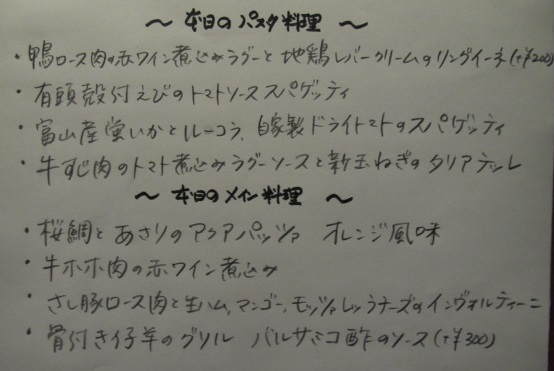 ～ 本日のパスタ料理 ～
・鴨ロース肉の赤ワイン煮込みラグーと地鶏レバークリームのリングイーネ(+¥200)
・有頭殻付えびのトマトソーススパゲッティ
・富山産蛍いかとルーコラ、自家製ドライトマトのスパゲッティ
・牛すじ肉のトマト煮込みラグーソースと新玉ねぎのタリアテッレ
～ 本日のメイン料理 ～
・桜鯛とあさりのアクアパッツァ オレンジ風味
・牛ホホ肉の赤ワイン煮込み
・さし豚ロース肉と生ハム、マンゴー、モッツァレッラチーズのインヴォルティーニ
・骨付き仔羊のグリル バルサミコ酢のソース(+¥300)